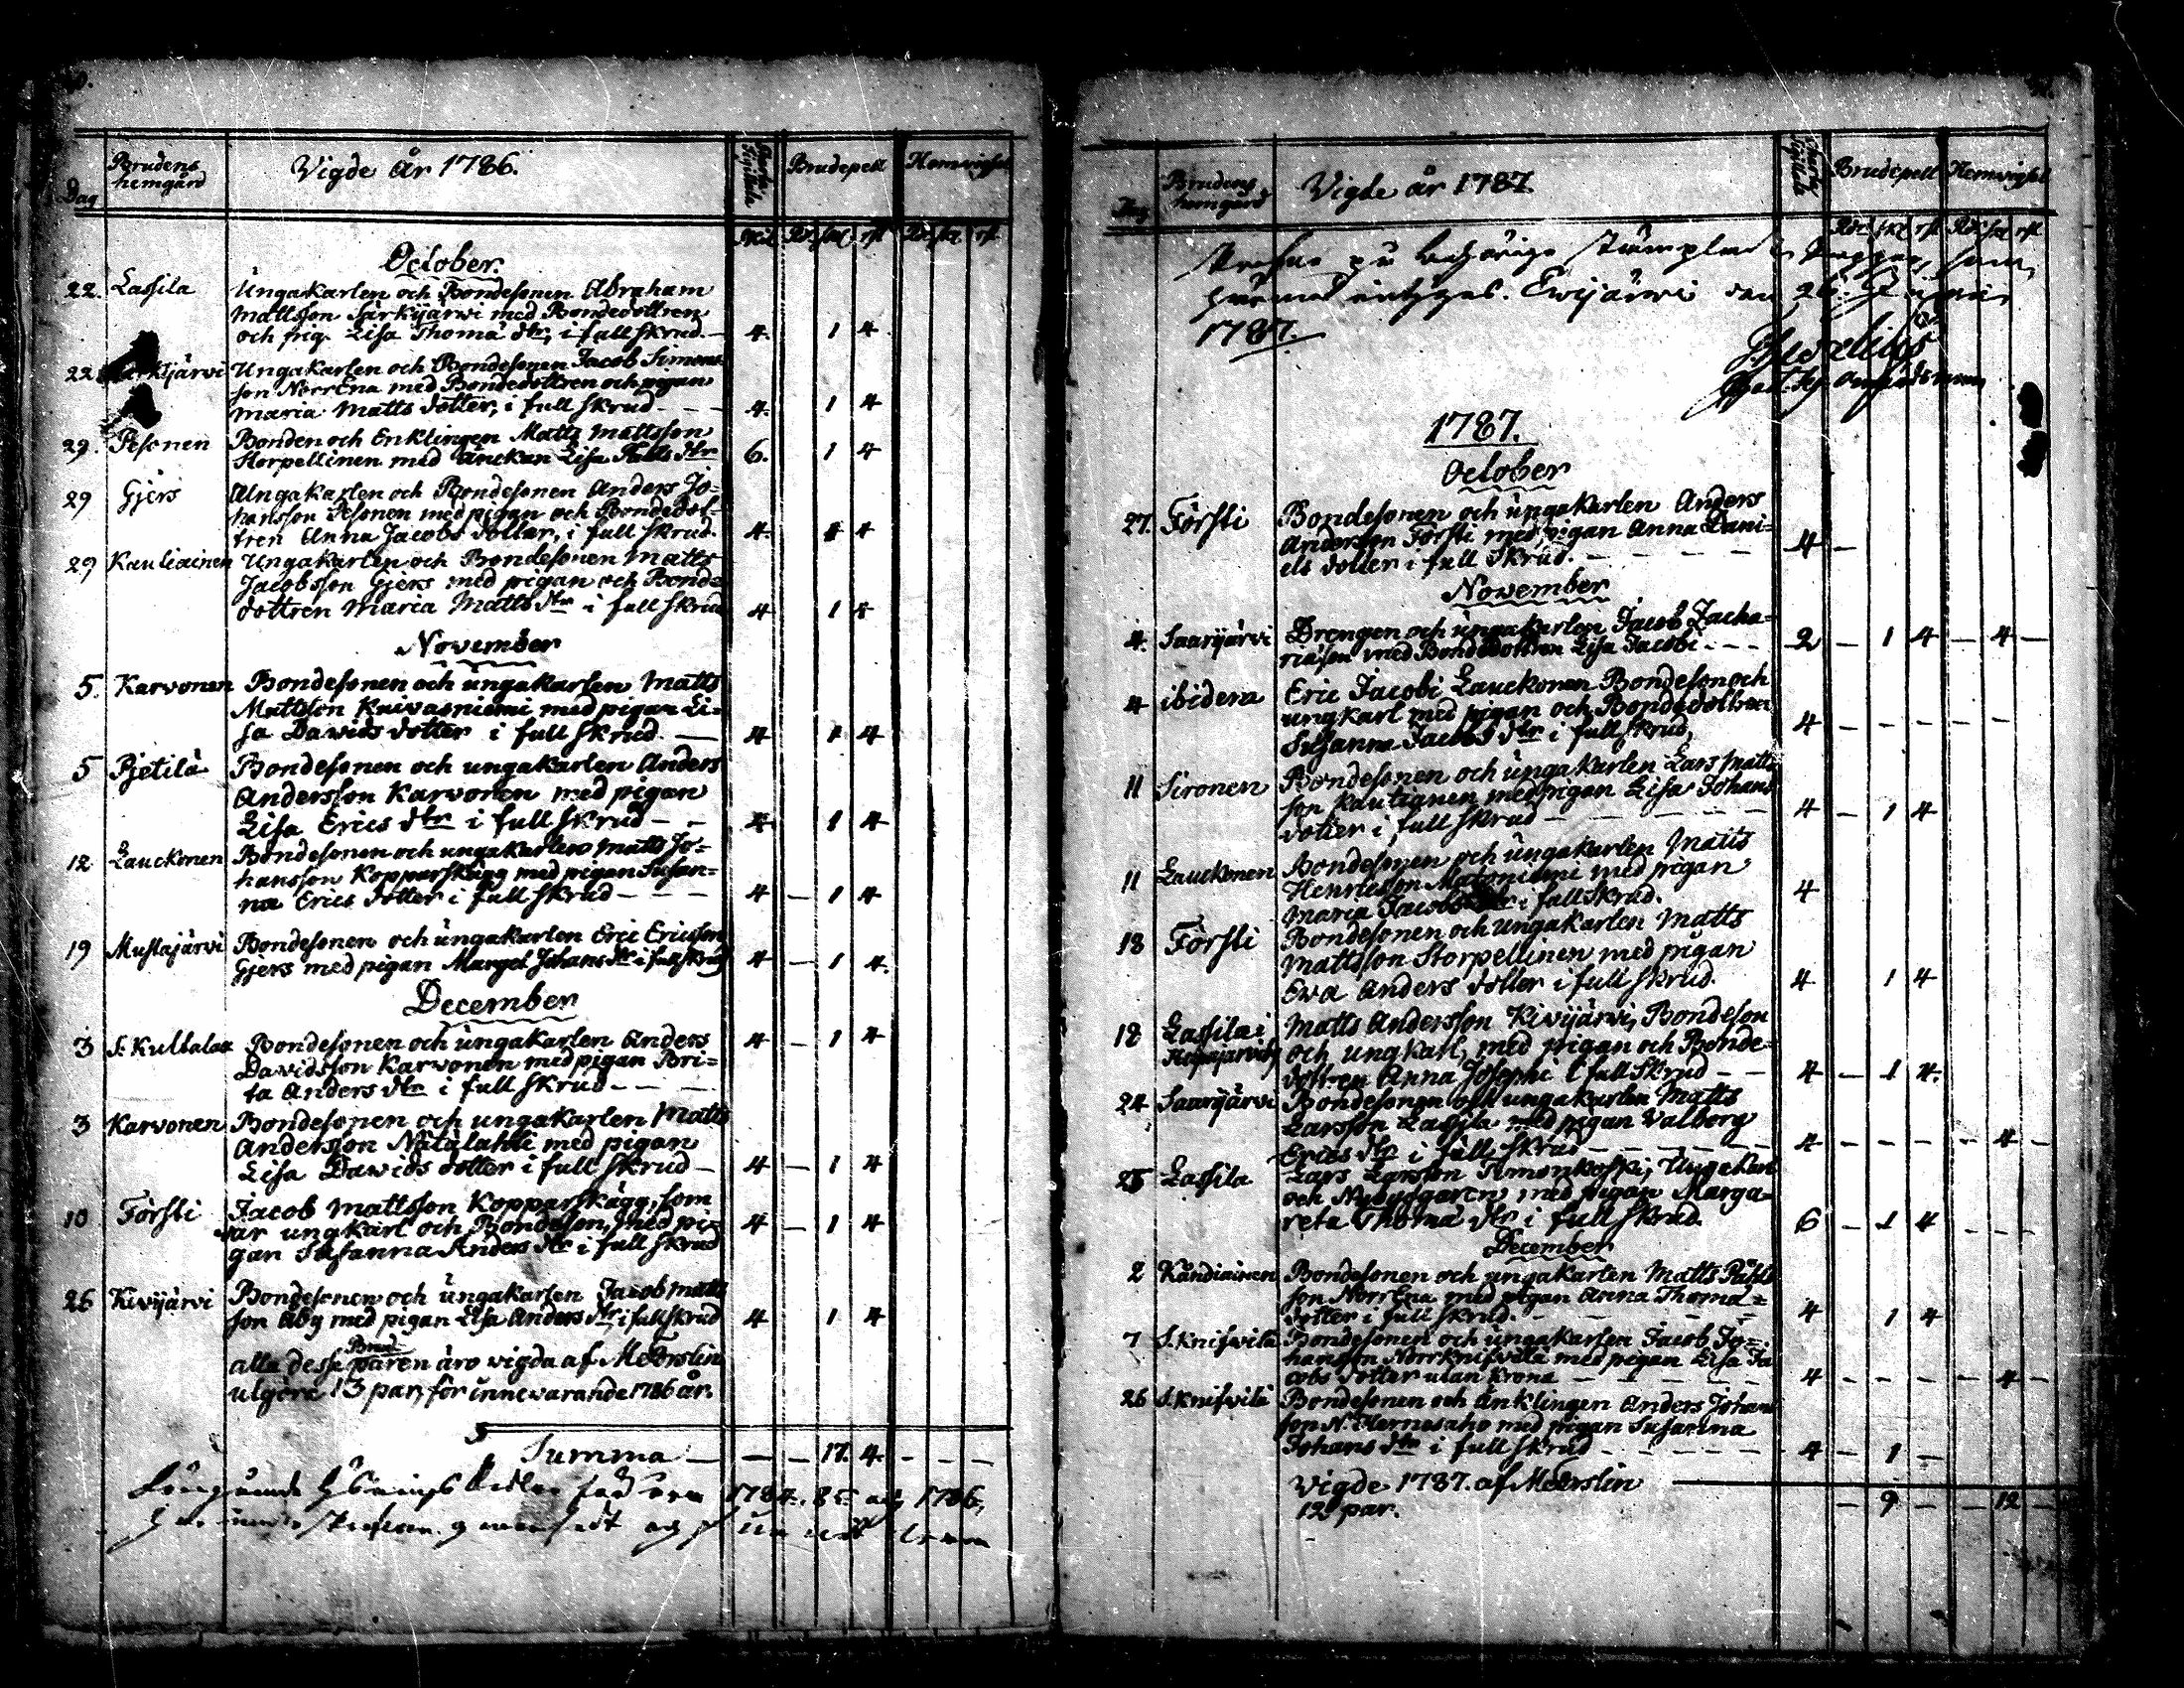 Dag Brudens hemgård Vigde År 1786. Charta Sigillata Brudepell Hemvigsel
Skil Rdr skl rst Rdr skl rst
October.
22. Lassila Ungakarlen och Bondesonen Abraham
Mattsson Särkijärwi med Bondedottren
och pig. Lisa Thomæ dtr, i full skrud. 4. 1 4
22 Ungakarlen och Bondesonen Jacob Simons
son NorrEna med Bondedottren och pigan
Maria Matts dotter, i full skrud - - - 4. 1 4
29. Pesonen Bonden och Enklingen Matts Mattsson
Storpellinen med änckan Lisa dtr 6. 1 4
29 Gjers Ungakarlen och Bondesonen Anders Jo=
hansson Pesonen med pigan och Bondedot=
tren Anna Jacobs dotter, i full skrud. 4. 1 4
29 Kauliainen Ungakarlen och Bondesonen Matts
Jacobsson Gjers med pigan och Bonde
dottren Maria Matts dtr i full skrud 4 1 4
November
5. Karvonen Bondesonen och ungakarlen Matts
Mattson Kuivasniemi med pigan Li-
sa Dawids dotter i full skrud. — 4 1 4
5 Pjetilä Bondesonen och ungakarlen Anders
Andersson Karvonen med pigan
Lisa Erics dtr i full skrud - - 4 1 4
12 Lauckonen Bondesonen och ungakarlen Matts Jo=
hansson Kopparskägg med pigan Susan=
na Erics dotter i full skrud - - - 4 — 1 4
19 Mustajärvi Bondesonen och ungakarlen Eric Ericsson
Gjers med pigan Marget Johans dtr i full skrud 4 — 1 4.
December
3 S. Kultalax Bondesonen och ungakarlen Anders 4 — 1 4
Davidsson Karvonen med pigan Bri=
ta Anders dtr i full skrud - - - -
3 Karvonen Bondesonen och ungakarlen Matts
Andersson Nätalahti med pigan
Lisa Dawids dotter i full skrud — 4 — 1 4
10 Försti Jacob Mattsson Kopparskägg, som
är ungkarl och Bondeson, med pi=
gan Susanna Anders dtr i full skrud 4 — 1 4
26 Kivijärvi Bondesonen och ungakarlen Jacob Matts
son Aby med pigan Lisa Anders dtr, i full skrud 4 1 4
Brud
alla desse paren äro vigda af MEorslin
utgöra 13 par, för innevarande 1786 år.
Summa — — — 17. 4. - - -
1784. 85 och 1786,
Dag Brudens hemgård Vigde år 1787. Charta Sigillata Brudepell Hemvigsel
Rdr skl rst Rdr skl rst
Ewijärwi den 26.
1787.
1787.
October
27. Försti Bondesonen och ungakarlen Anders
Andersson Försti med pigan Anna Dani=
els dotter i full skrud. - - - - 4 —
November
4. Saarijärvi Drengen och ungakarlen Jacob Zacha=
riæson med Bondedottren Lisa Jacobi - - - 2 — 1 4 — 4 —
4 ibidem Eric Jacobi Lauckonen Bondeson och
ungkarl med pigan och Bondedottren
Susanna Jacobs dtr i full skrud, 4 - - - - -
11 Sironen Bondesonen och ungakarlen Lars Matts
son Kautianen med pigan Lisa Johans
dotter i full skrud - - - - - 4 — 1 4
11 Lauckonen Bondesonen och ungakarlen Matts
Henricsson med pigan
Maria Jacobs dtr i full skrud. 4
18 Försti Bondesonen och ungakarlen Matts
Mattsson Storpellinen med pigan
Ewa Anders dotter i full skrud. 4 1 4
18 Lassila i Matts Andersson Kivijärvi, Bondeson
och ungkarl, med pigan och Bonde=
dottren Anna Josephi i full skrud - - 4 — 1 4.
24 Saarijärvi Bondesonen och ungakarlen Matts
Larsson Lassila med pigan Valborg
Erics dtr i full skrud - - - - - - 4 - - - - 4 -
25 Lassila Lars Larsson Timonkoski, Ungakarl
och Nybyggaren med pigan Marga=
reta Thomæ dtr i full skrud. 6 — 1 4 - - -
December
2 Kändiainen Bondesonen och ungakarlen Matts Påhls
son NorrEna med pigan Anna Thomæ=
dotter i full skrud. - - - - - 4 1 4
7 S. Knifvilä Bondesonen och ungakarlen Jacob Jo=
hansson Norrknifvilä med pigan Lisa Ja
cobs dotter utan krona - - - - - 4 - - - - 4 -
26 S. Knifvilä Bondesonen och Änklingen Anders Johans
son N. Hernesaho med pigan Susanna
Johans dtr i full skrud - - - - - 4 — 1 —
Vigde 1787. af MEorslin
12 par. — 9 — — 12 —